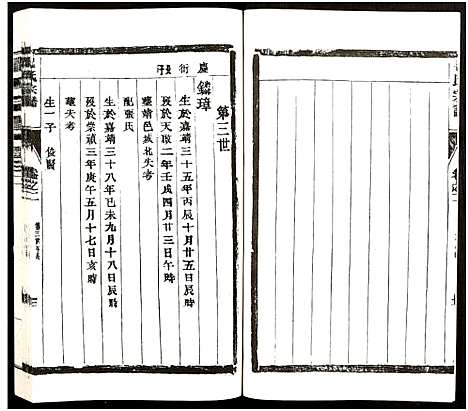 第三世
鏻璋
生於嘉靖三十五年丙辰十月廿五日辰時
歿於天啟二年壬戌四月廿三日午時
塟靖邑城北失考
配張氏
生於嘉靖三十八年己未九月十八日辰時
歿於崇禎三年庚午五月十七日亥時
塟失考
生一子
氏宗譜
卷之